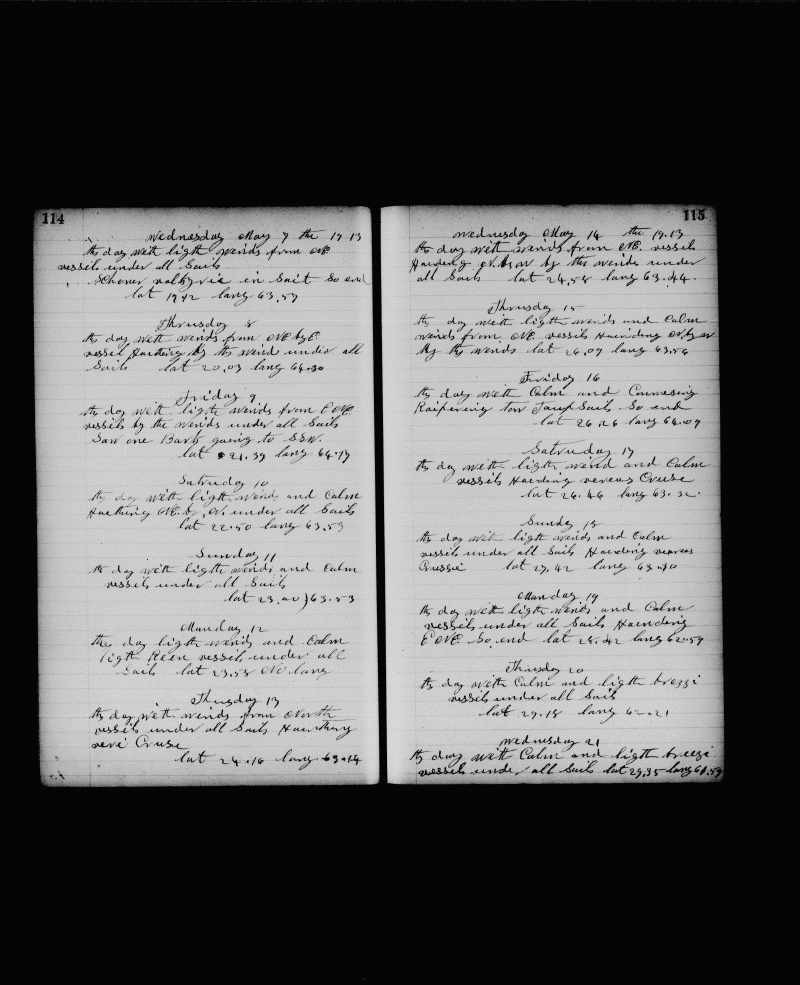 114
Wednesday May 7 the 1913
this day with ligth winds from NE
vessils under all Sails
Schoner valkyria in Sait So end
lat 19.42 lang 63.57
Thrusday 8
ths day with winds from NE by E
vessil Haething by ths wind under all
Sails lat 20.03 lang 64.30
Friday 9
ths day with ligth winds from E NE
vessils by the winds under all Sails
Saw one Bark going to SSW.
lat 21.39 lang 64.17
Satruday 10
ths day with ligth winds and Calm
Haething NE. by N. under all Sails
lat 22.50 lang 63.53
Sunday 11
ths day with ligth winds and Calm
vessils under all Sails
lat 23.20 63.53
Manday 12
ths day ligth winds and Calm
ligth Reen vessils under all
Sails lat 23.58 No lang
Thusday 13
ths day with winds from North
vessils under all Sails Haething
veri Cruse
lat 24.16 lang 63.14
115
Wednesday May 14 the 19.13
ths day with winds from NE. vessils
Haeding N. by W by ths winds under
all Sails lat 24.58 lang 63.44.
Thrusday 15
ths day with ligth winds and Calm
winds from NE vessils Haeinding N by W
by ths winds lat 26.07 lang 63.56
Friday 16
ths day with Calm and
Raifering tow Sails So end
lat 26.26 lang 64.07
Satruday 17
ths day with ligth wind and Calm
vessils Haeding vereus Cruse
lat 26.46 lang 63.32.
Sunday 18
ths day with ligth winds and Calm
vessils under all Sails Haeinding vereus
Crussie lat 27.42 lang 63.30
Manday 19
ths day with ligth winds and Calm
vessils under all Sails Haeinding
E NE So end lat 28.42 lang 62.57
Thusday 20
ths day with Calm and ligth brezzi
vessils under all Sails
lat 29.18 lang 62.21
Wednesday 21
ths day with Calm and ligth breezi
vessils under all Sails lat 29.35 lang 61.57